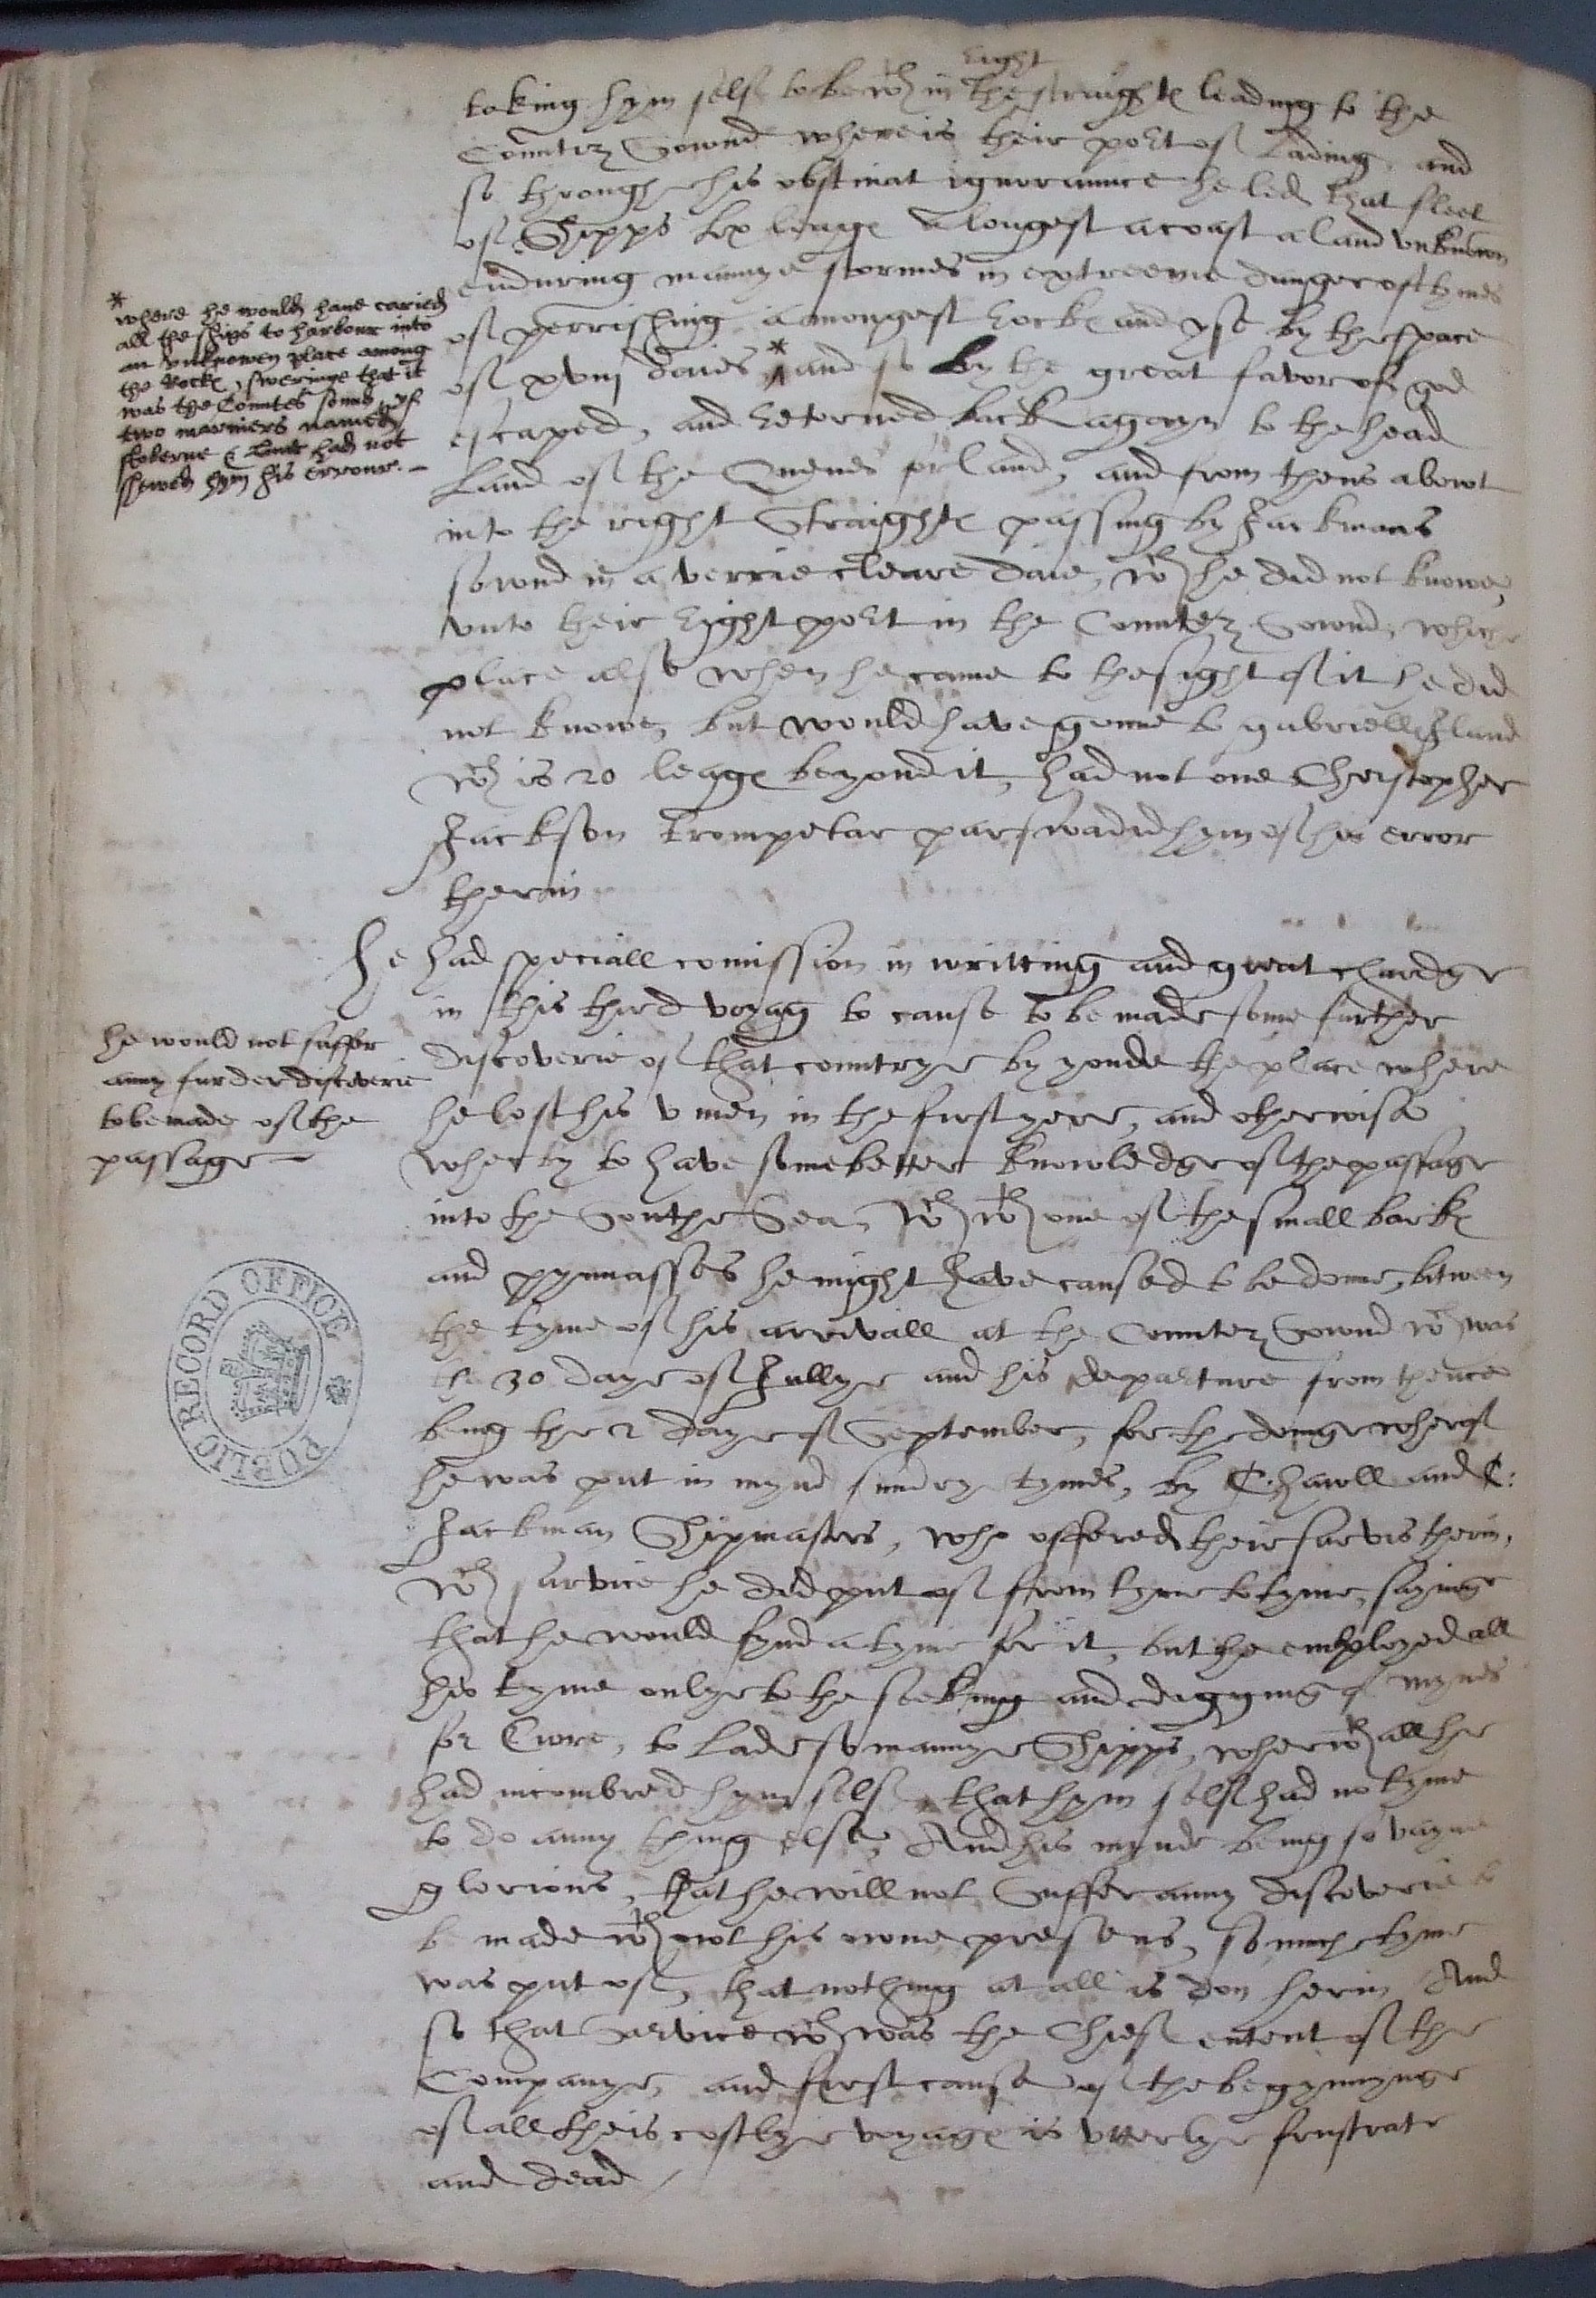 Right
taking hym self to be wch in the straightes leading to the
Countez Sownd where is their port of Lading, and
so throughe his obstinat ignoraunce he led that fleet
of Shipps lx leages alongest a coast a land vnknown
enduring mannye stormes in extreeme dangers oftymes
of perrishing amongest Rockes and yse by the space
of xviij daies * and so by the great favor of god
escaped, and Retorned back agayn to the head
Land of the Quenes forland, and from thens abowt
into the right Straightes passing by Jackmans
sownd in a verrie cleare daie, wch he did not knowe,
vnto their Right port in the Countez Sownd, whiche
place also when he came to the sight of it he did
not knowe, but would have gonne to gabriells Iland
wch is 20 leages beyond it, had not one Christopher
Jackson trompetar parswadid hym of his error
therin
* where he would have caried
all the ships to harbour into
an vnknowen place among
the Rockes, sweringe that it
was the Countes sound yf
two mariners named
Stoberne & had not
shewed hym his errour. -
He had speciall comission in writting and great chardge
in this third voyag to cause to be made some further
discoverie of that countrye by yonde the place where
he lost his v men in the first yere, and otherwise
wherby to have some better knowledge of the passage
into the Southe Sea, wch wth one of the small barkes
and pynnasses he might have caused to be donne, bitween
the tyme of his arrivall at the Countez Sownd wch was
the 30 daye of Jullye and his departure from thence
being the 2 daye of September, for the doinge wherof
he was put in mynd sundry tymes, by C. hawll and C:
Jackman Shipmasters, who offered their sarvis therin,
wch sarvice he did put of from tyme to tyme, sayinge
that he would fynd a tyme for it, but he employed all
his tyme onlye to the seeking and digging of mynes
for Ewre, to lade so mannye Shipps, wherwth all he
had incombred hym self, that hym self had no tyme
to do anny thing else, And his mynde being so vayne
glorious, that he will not Suffer anny discoverie to
be made wthowt his owne presens, so muche tyme
was put of, that nothing at all is don herin And
so that Service wch was the Chief entent of the
Companye, and first cause of the begynnynge
of all theis costlye voyages is vtterlye frustrate
and dead /
he would not suffer
anny furder discoverie
to be made of the
passage -
PUBLIC RECORD OFFICE